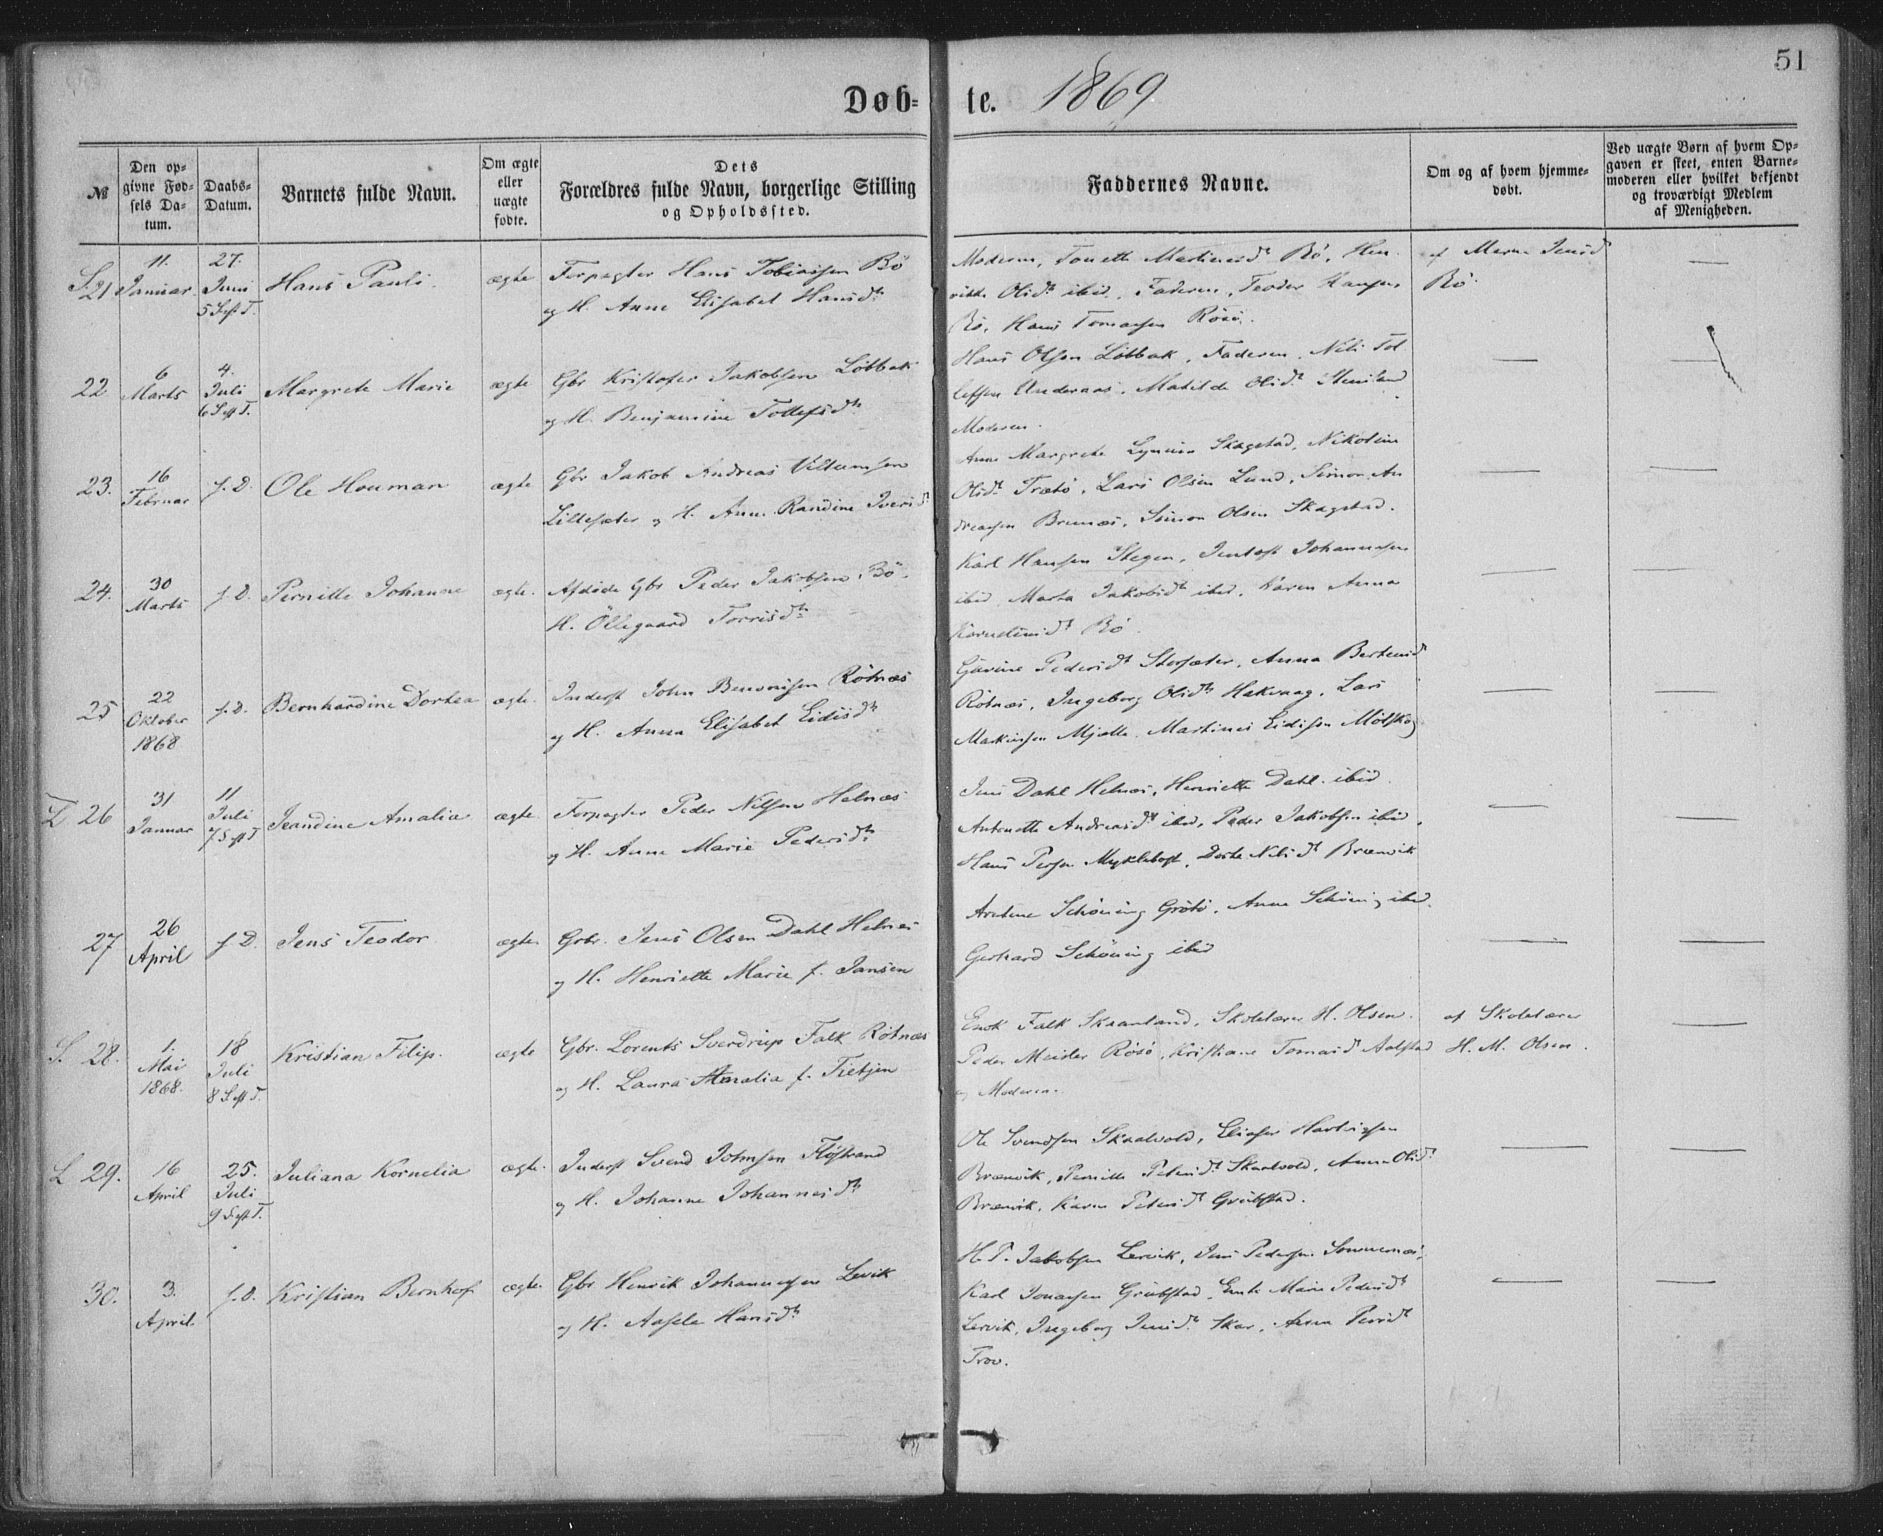 51
Døb-
te. 1869
№
Den op-
givne Fød-
sels Da-
tum.
Daabs-
Datum.
Barnets fulde Navn.
Om ægte
eller
uægte
fødte.
Dets
Forældres fulde Navn, borgerlige Stilling
og Opholdssted.
Faddernes Navne.
Om og af hvem hjemme-
døbt.
Ved uægte Børn af hvem Op-
gaven er skeet, enten Barne-
moderen eller hvilket bekjendt
og troværdigt Medlem
af Menigheden.
S. 21
11.
Januar
27.
Juni
5 S eft T.
Hans Pauli.
ægte
Forpagter Hans Tobiassen Bö
og H. Anne Elisabet Hansdtr
Moderen, Martinusdtr Bö, Hen-
rikke Olsdtr ibid, Faderen, Teodor Hansen
Bö, Hans Tomassen Rösö.
Bö.
22
6
Marts
4.
Juli
6 S eft T.
Margrete Marie
ægte
Gbr Kristofer Jakobsen Löbbak
og H. Benjamine Tollefsdtr
Hans Olsen Löbbak, Faderen, Nils Tol-
lefsen Andernaas, Matilde Olsdtr
Moderen.
23.
16
Februar
s. D.
Ole Houman
ægte
Gbr Jakob Andreas Villumsen
Lillesæter og H. Anne Randine Iversdtr
Anne Margrete Skagstad, Nikoline
Olsdtr Trætö, Lars Olsen Lund, Simon An-
dreassen Brunæs, Simon Olsen Skagstad.
24.
30
Marts
s. D.
Pernille Johanne
ægte.
Afdöde Gbr Peder Jakobsen Bö.
H. Öllegaard Torrisdtr
Karl Hansen Stegen, Johannessen
ibid, Marta Jakobsdtr ibid, Karen Anna
Korneliusdtr Bö.
25
22
Oktober
1868
s. D.
Bernhardine Dortea
ægte.
Inderst John Benonisen Rötnæs
og H. Anna Elisabet Eidisdtr
Gjærine Pedersdtr Storsæter, Anna Bertheusd
Rötnæs, Ingeborg Olsdtr Hakvaag, Lars
Markussen Mjelle, Martines Eidissen Mölskog
L 26
31
Januar
11
Juli
7 S eft T
Jeandine Amalia
ægte.
Forpagter Peder Nilsen Helnæs
og H. Anne Marie Pedersdtr
Jens Dahl Helnæs, Henriette Dahl ibid
Antonette Andreasdtr ibid, Peder Jakobsen ibid,
Hans Persen Myklebost, Dorte Nilsdtr Brænvik
27
26
April
s. D.
Jens Teodor
ægte.
Grbr. Jens Olsen Dahl Helnæs
og H. Henriette Marie f. Jansen
Schöning Grötö, Anne Schöning ibid.
Gerhard Schöning ibid
S. 28.
1.
Mai
1868.
18
Juli
8 S eft T.
Kristian Filip.
ægte
Gbr. Lorents Sverdrup Falk Rötnæs
og H. Laura Amalia f. Tretjen
Enok Falk Skaanland, Skolelærer H. Olsen.
Peder Meisler Rösö, Kristiane Tomasd Aalstad
og Moderen.
af Skolelærer
H. M. Olsen.
L 29.
16
April
25.
Juli
9 S eft T.
Juliana Kornelia
ægte.
Inderst Svend Johnsen Flöstrand
og H. Johanne Johannesdtr
Ole Svendsen Skaalvold, Eliaser Hartvigsen
Brænvik, Pernille Petersdtr Skaalvold, Anna Olsdtr
Brænvik, Karen Petersdtr Gröbstad.
30.
3.
April.
s. D.
Kristian Bernhof
ægte.
Gbr Henrik Johannessen Levik
og H. Assele Hansdtr
H. P. Jakobsen Lervik, Jens Pedersen Sommernæs,
Karl Jonassen Gröbstad, Marie Pedersdtr
Lervik, Ingeborg Jensdtr Skar, Anna
Trov.